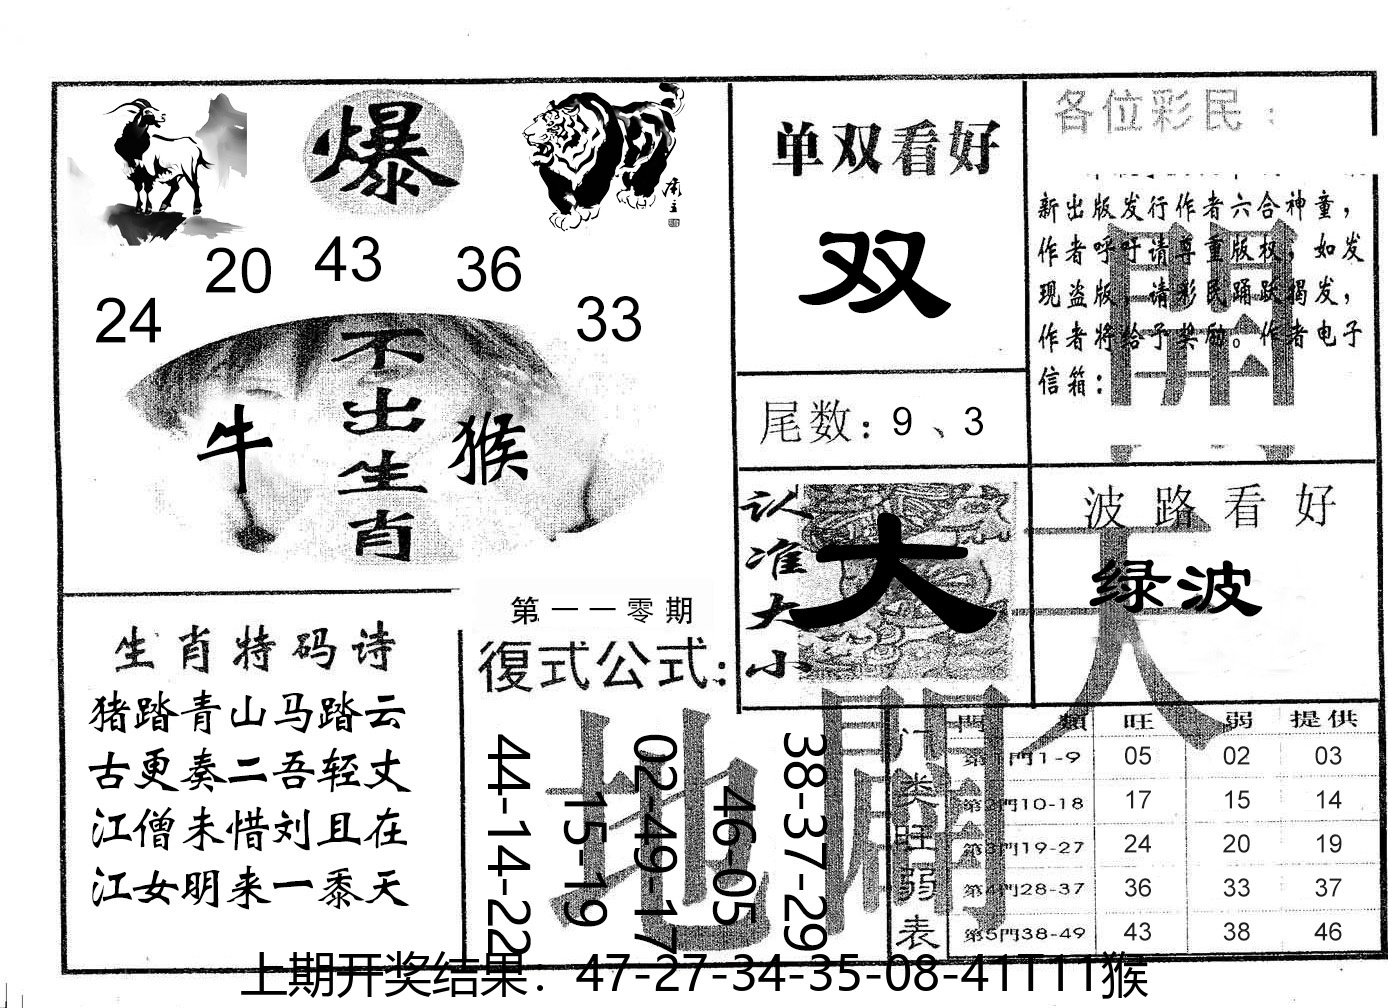 爆
20
43
36
24
33
不出生肖
牛
猴
单双看好
双
尾数：9、3
各位彩民：
新出版发行作者六合神童，
作者呼吁请尊重版权，如发
现盗版，请彩民踊跃揭发，
作者将给予奖励。作者电子
信箱：
認准大小
大
波路看好
绿波
天
開
地
開
生肖特码诗
猪踏青山马踏云
古更奏二吾轻丈
江僧未惜刘且在
江女明来一黍天
第一一零期
復式公式：
44-14-22
15-19
02-49-17
46-05
38-37-29
门类旺弱表
門類 旺 弱 提供
第1門1-9 05 02 03
第2門10-18 17 15 14
第3門19-27 24 20 19
第4門28-37 36 33 37
第5門38-49 43 38 46
上期开奖结果：47-27-34-35-08-41T11猴